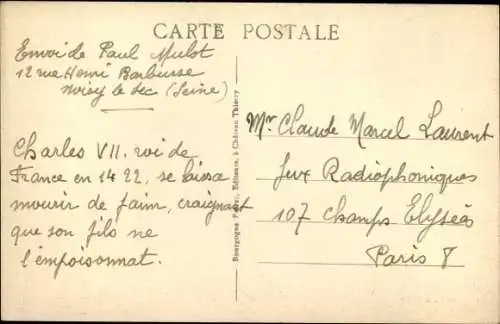 CARTE POSTALE
Envoi de Paul Mulot
12 rue Henri Barbusse
Noisy le Sec (Seine)
Charles VII. roi de
France en 1422, se laissa
mourir de faim, craignant
que son fils ne
l'empoisonnat.
Editeurs, à Château Thierry
Mr Claude Marcel Laurent
Jeux Radiophoniques
107 Champs Elysées
Paris 8